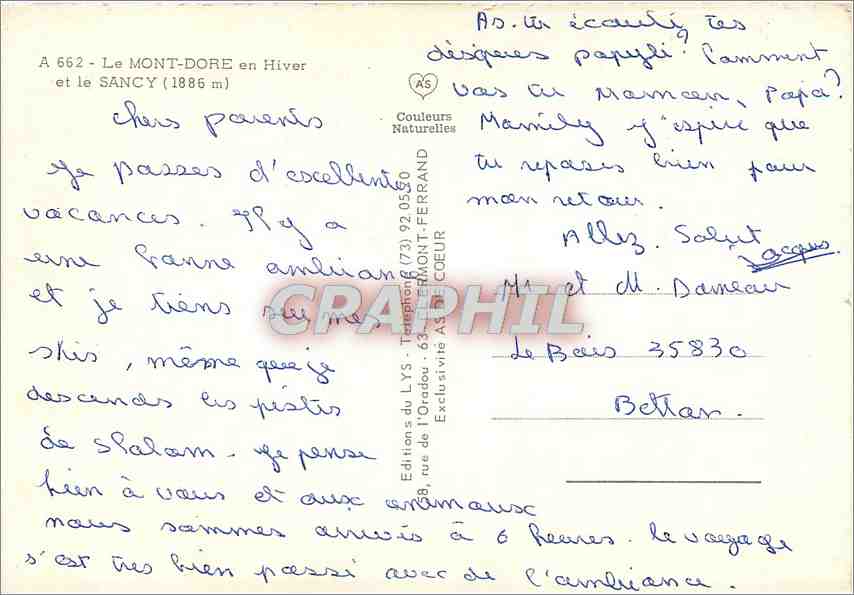 A 662 - Le MONT-DORE en Hiver
et le SANCY (1886 m)
AS
Couleurs
Naturelles
chers parents
Je passes d'excellentes
vacances. Il y a
une bonne ambiance
et je tiens sur mes
skis, même que je
descends les pistes
de slalom. Je pense
bien à vous et aux animaux
nous sommes arrivés à 6 heures. le voyage
s'est tres bien passé avec de l'ambiance.
As-tu écouté tes
disques papyli? Comment
vas tu Maman, Papa?
Mamily j'espire que
tu reposes bien pour
mon retour.
Allez. Salut
Jacques
Editions du LYS - Telephone (73) 92.05.50
28, rue de l'Oradou - 63-CLERMONT-FERRAND
Exclusivité AS DE COEUR
CPAPHIL
M et M. Dameau
Le Bois 35830
Betton.